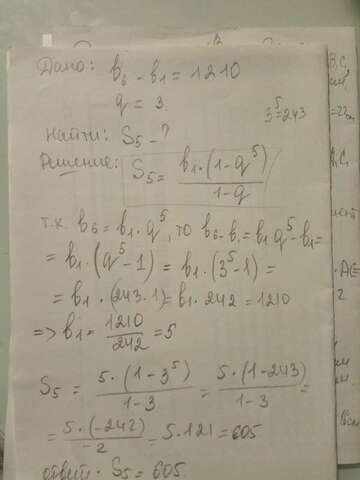 Дано: b₆ - b₁ = 1210
q = 3.
3⁵=243
Найти: S₅ - ?
Решение: S₅ = b₁·(1-q⁵) / 1-q
т.к. b₆ = b₁·q⁵, то b₆-b₁=b₁q⁵-b₁=
= b₁·(q⁵-1) = b₁·(3⁵-1) =
= b₁·(243-1)=b₁·242=1210
=> b₁= 1210/242 =5
S₅ = 5·(1-3⁵) / 1-3 = 5·(1-243) / 1-3 =
= 5·(-242) / -2 = 5·121=605
ответ. S₅ = 605.